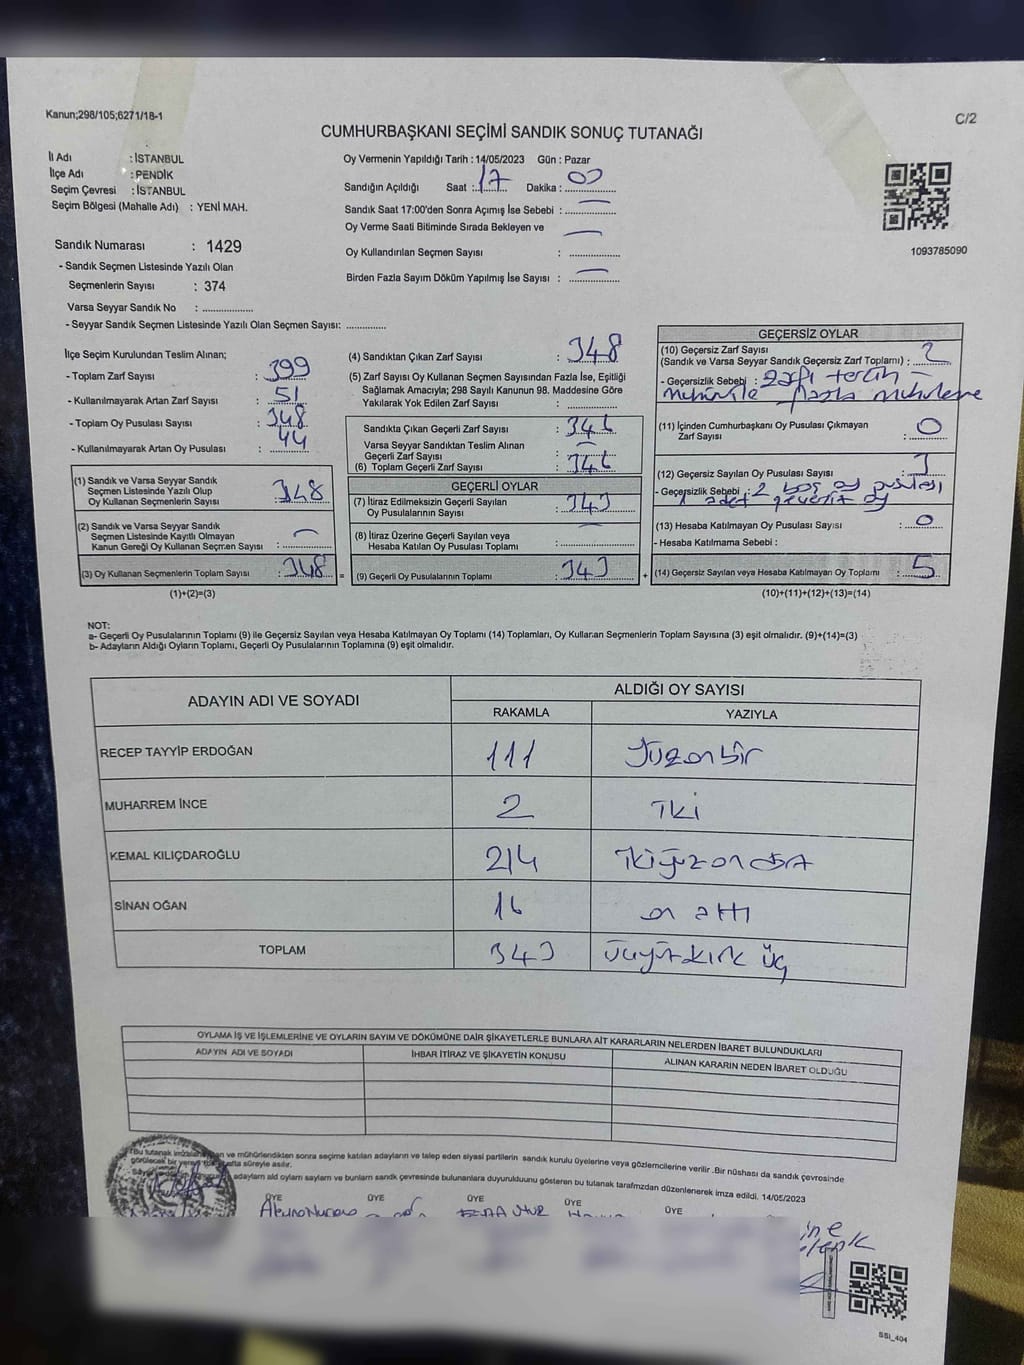 Kanun;298/105;6271/18-1
C/2
CUMHURBAŞKANI SEÇİMİ SANDIK SONUÇ TUTANAĞI
İl Adı : İSTANBUL
İlçe Adı : PENDİK
Seçim Çevresi : İSTANBUL
Seçim Bölgesi (Mahalle Adı) : YENİ MAH.
Oy Vermenin Yapıldığı Tarih : 14/05/2023 Gün : Pazar
Sandığın Açıldığı Saat : 17 Dakika : 00
Sandık Saat 17:00'den Sonra Açımış İse Sebebi : —
Oy Verme Saati Bitiminde Sırada Bekleyen ve
Oy Kullandırılan Seçmen Sayısı : —
Birden Fazla Sayım Döküm Yapılmış İse Sayısı : —
1093785090
Sandık Numarası : 1429
- Sandık Seçmen Listesinde Yazılı Olan
Seçmenlerin Sayısı : 374
Varsa Seyyar Sandık No : ................
- Seyyar Sandık Seçmen Listesinde Yazılı Olan Seçmen Sayısı: .............
İlçe Seçim Kurulundan Teslim Alınan;
- Toplam Zarf Sayısı : 399
- Kullanılmayarak Artan Zarf Sayısı : 51
- Toplam Oy Pusulası Sayısı : 348
- Kullanılmayarak Artan Oy Pusulası : 44
(1) Sandık ve Varsa Seyyar Sandık
Seçmen Listesinde Yazılı Olup
Oy Kullanan Seçmenlerin Sayısı : 348
(2) Sandık ve Varsa Seyyar Sandık
Seçmen Listesinde Kayıtlı Olmayan
Kanun Gereği Oy Kullanan Seçmen Sayısı : —
(3) Oy Kullanan Seçmenlerin Toplam Sayısı : 348
(1)+(2)=(3)
(4) Sandıktan Çıkan Zarf Sayısı : 348
(5) Zarf Sayısı Oy Kullanan Seçmen Sayısından Fazla İse, Eşitliği
Sağlamak Amacıyla; 298 Sayılı Kanunun 98. Maddesine Göre
Yakılarak Yok Edilen Zarf Sayısı : ................
Sandıkta Çıkan Geçerli Zarf Sayısı : 346
Varsa Seyyar Sandıktan Teslim Alınan
Geçerli Zarf Sayısı : —
(6) Toplam Geçerli Zarf Sayısı : 346
GEÇERLİ OYLAR
(7) İtiraz Edilmeksizin Geçerli Sayılan
Oy Pusulalarının Sayısı : 343
(8) İtiraz Üzerine Geçerli Sayılan veya
Hesaba Katılan Oy Pusulası Toplamı : —
= (9) Geçerli Oy Pusulalarının Toplamı : 343
GEÇERSİZ OYLAR
(10) Geçersiz Zarf Sayısı
(Sandık ve Varsa Seyyar Sandık Geçersiz Zarf Toplamı) : 2
- Geçersizlik Sebebi : zarfı tercih
mührüyle fazla mühürleme
(11) İçinden Cumhurbaşkanı Oy Pusulası Çıkmayan
Zarf Sayısı : 0
(12) Geçersiz Sayılan Oy Pusulası Sayısı : 3
- Geçersizlik Sebebi : 2 boş oy pusulası
1 adet geçersiz oy
(13) Hesaba Katılmayan Oy Pusulası Sayısı : 0
- Hesaba Katılmama Sebebi :
+ (14) Geçersiz Sayılan veya Hesaba Katılmayan Oy Toplamı : 5
(10)+(11)+(12)+(13)=(14)
NOT:
a- Geçerli Oy Pusulalarının Toplamı (9) ile Geçersiz Sayılan veya Hesaba Katılmayan Oy Toplamı (14) Toplamları, Oy Kullanan Seçmenlerin Toplam Sayısına (3) eşit olmalıdır. (9)+(14)=(3)
b- Adayların Aldığı Oyların Toplamı, Geçerli Oy Pusulalarının Toplamına (9) eşit olmalıdır.
ADAYIN ADI VE SOYADI
ALDIĞI OY SAYISI
RAKAMLA YAZIYLA
RECEP TAYYİP ERDOĞAN 111 Yüzonbir
MUHARREM İNCE 2 İki
KEMAL KILIÇDAROĞLU 214 İkiyüzondört
SİNAN OĞAN 16 on altı
TOPLAM 343 üçyüzkırk üç
OYLAMA İŞ VE İŞLEMLERİNE VE OYLARIN SAYIM VE DÖKÜMÜNE DAİR ŞİKAYETLERLE BUNLARA AİT KARARLARIN NELERDEN İBARET BULUNDUKLARI
ADAYIN ADI VE SOYADI İHBAR İTİRAZ VE ŞİKAYETİN KONUSU ALINAN KARARIN NEDEN İBARET OLDUĞU
Bu tutanak ve mühürlendikten sonra seçime katılan adayların ve talep eden siyasi partilerin sandık kurulu üyelerine veya gözlemcilerine verilir .Bir nüshası da sandık çevrosinde
görülecek bir hafta süreyle asılır.
adayların ald oyların sayların ve bunların sandık çevresinde bulunanlara duyurulduunu gösteren bu tutanak tarafmzdan düzenlenerek imza edildi. 14/05/2023
ÜYE ÜYE ÜYE ÜYE ÜYE
SSİ_404